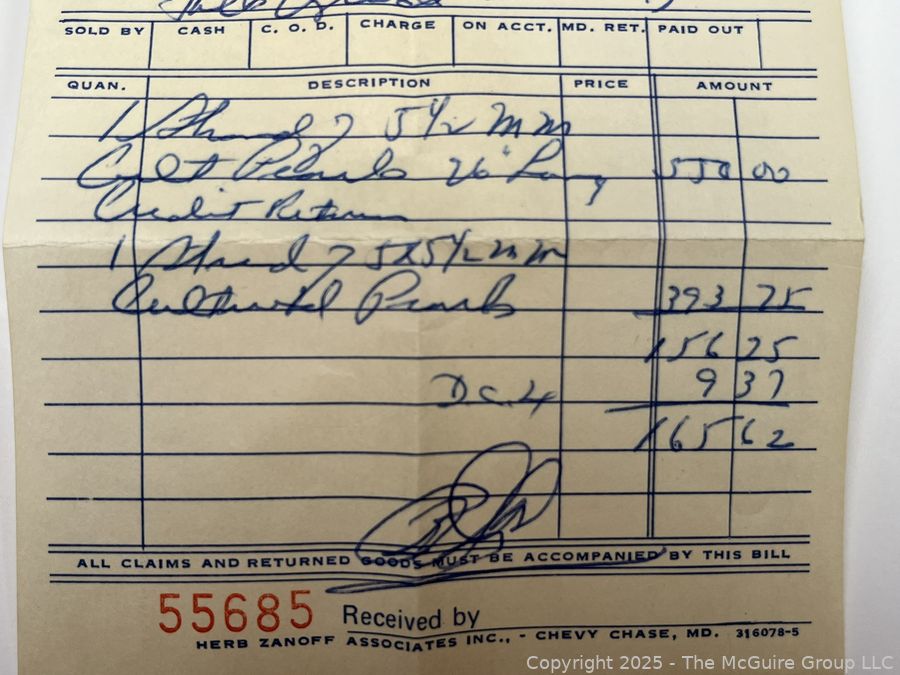 SOLD BY CASH C. O. D. CHARGE ON ACCT. MD. RET. PAID OUT
QUAN. DESCRIPTION PRICE AMOUNT
1 Strand 5 1/2 mm
Cult Pearls 26" Long 550 00
Credit Return
1 Strand 5x5 1/2 mm
Cultured Pearls 393 75
156 25
D.C. 9 37
165 62
ALL CLAIMS AND RETURNED GOODS MUST BE ACCOMPANIED BY THIS BILL
55685 Received by
HERB ZANOFF ASSOCIATES INC., - CHEVY CHASE, MD. 316078-5
Copyright 2025 - The McGuire Group LLC